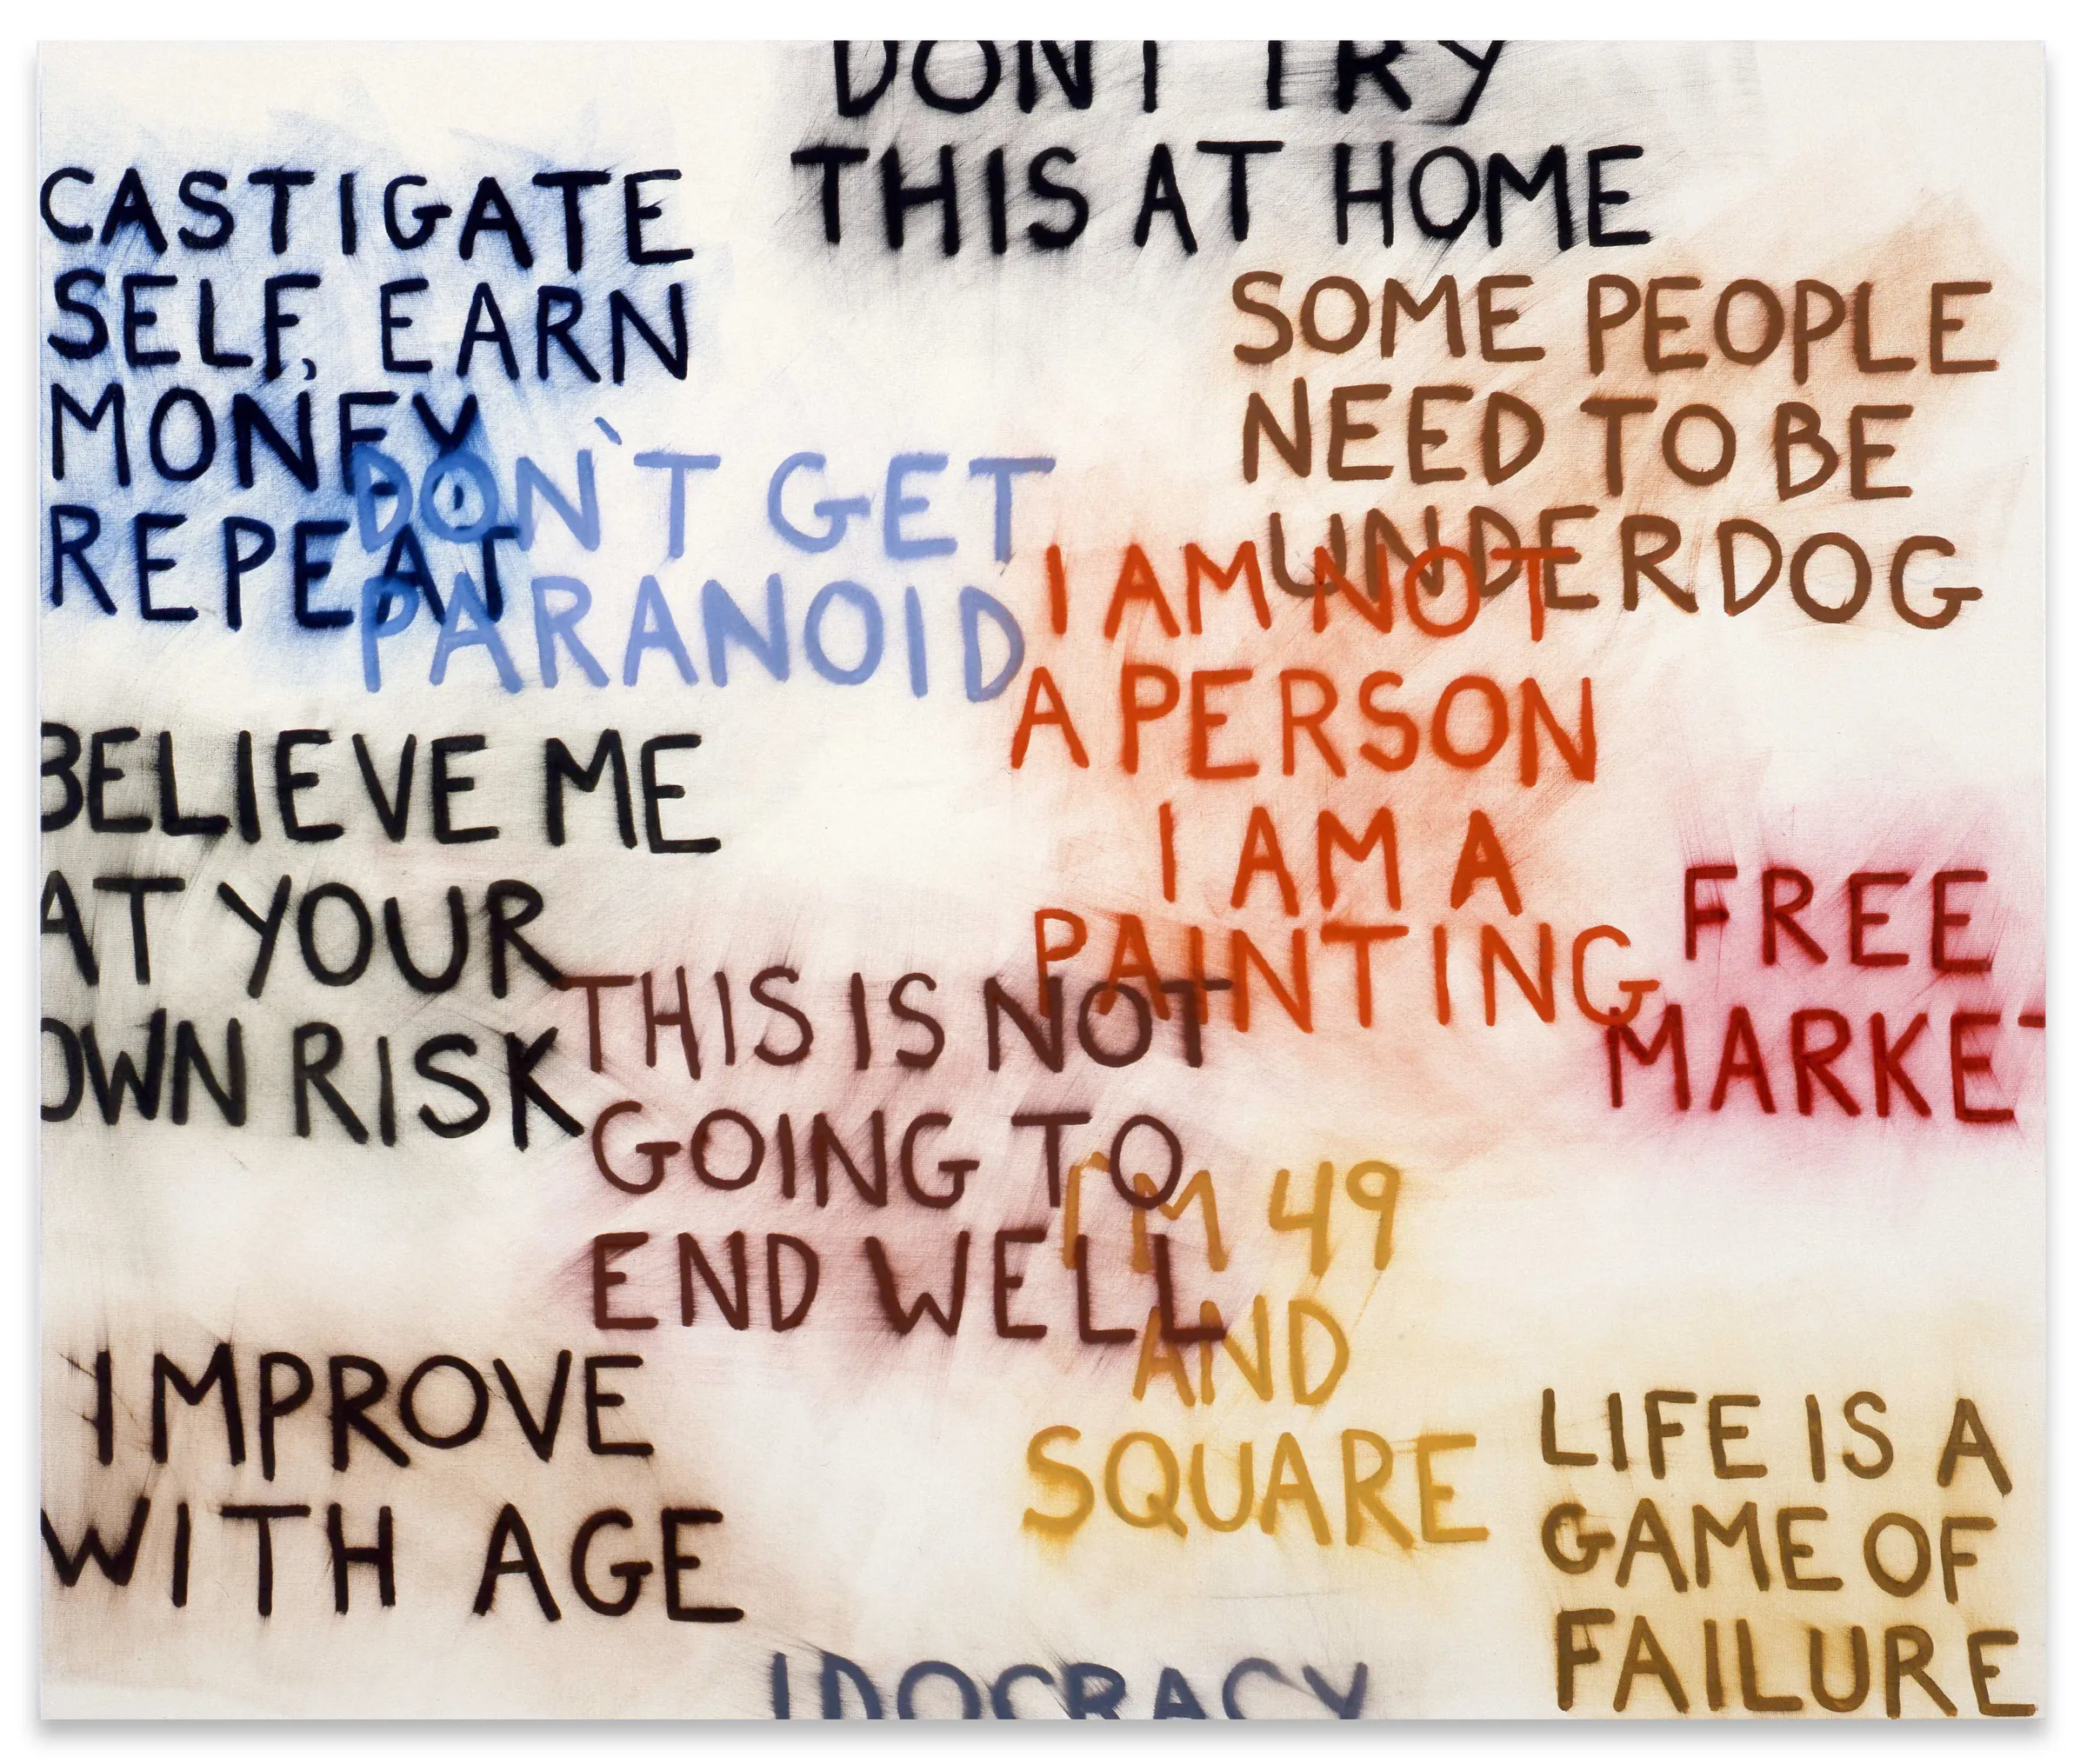 DON'T TRY
THIS AT HOME
CASTIGATE
SELF, EARN
MONEY,
REPEAT
SOME PEOPLE
NEED TO BE
UNDERDOG
DON`T GET
PARANOID
I AM NOT
A PERSON
I AM A
PAINTING
BELIEVE ME
AT YOUR
OWN RISK
FREE
MARKET
THIS IS NOT
GOING TO
END WELL
I'M 49
AND
SQUARE
IMPROVE
WITH AGE
LIFE IS A
GAME OF
FAILURE
IDOCRACY